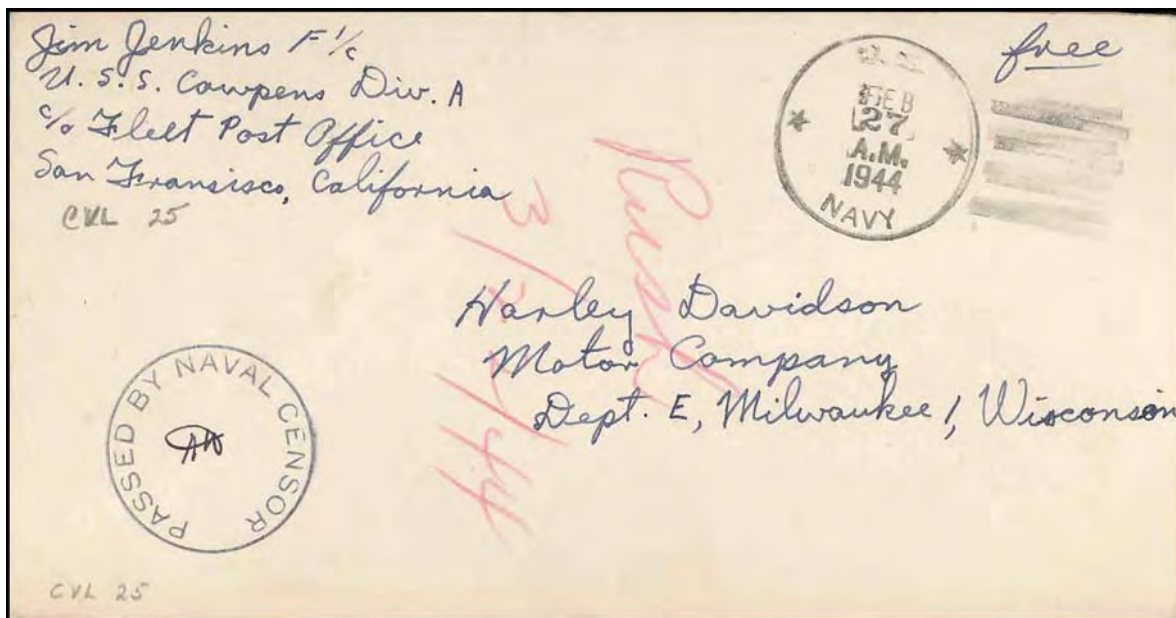 Jim Jenkins F 1/c
U.S.S. Cowpens Div. A
c/o Fleet Post Office
San Fransisco, California
CVL 25
FEB
27
A.M.
1944
NAVY
free
Harley Davidson
Motor Company
Dept. E, Milwaukee 1, Wisconsin
PASSED BY NAVAL CENSOR
CVL 25